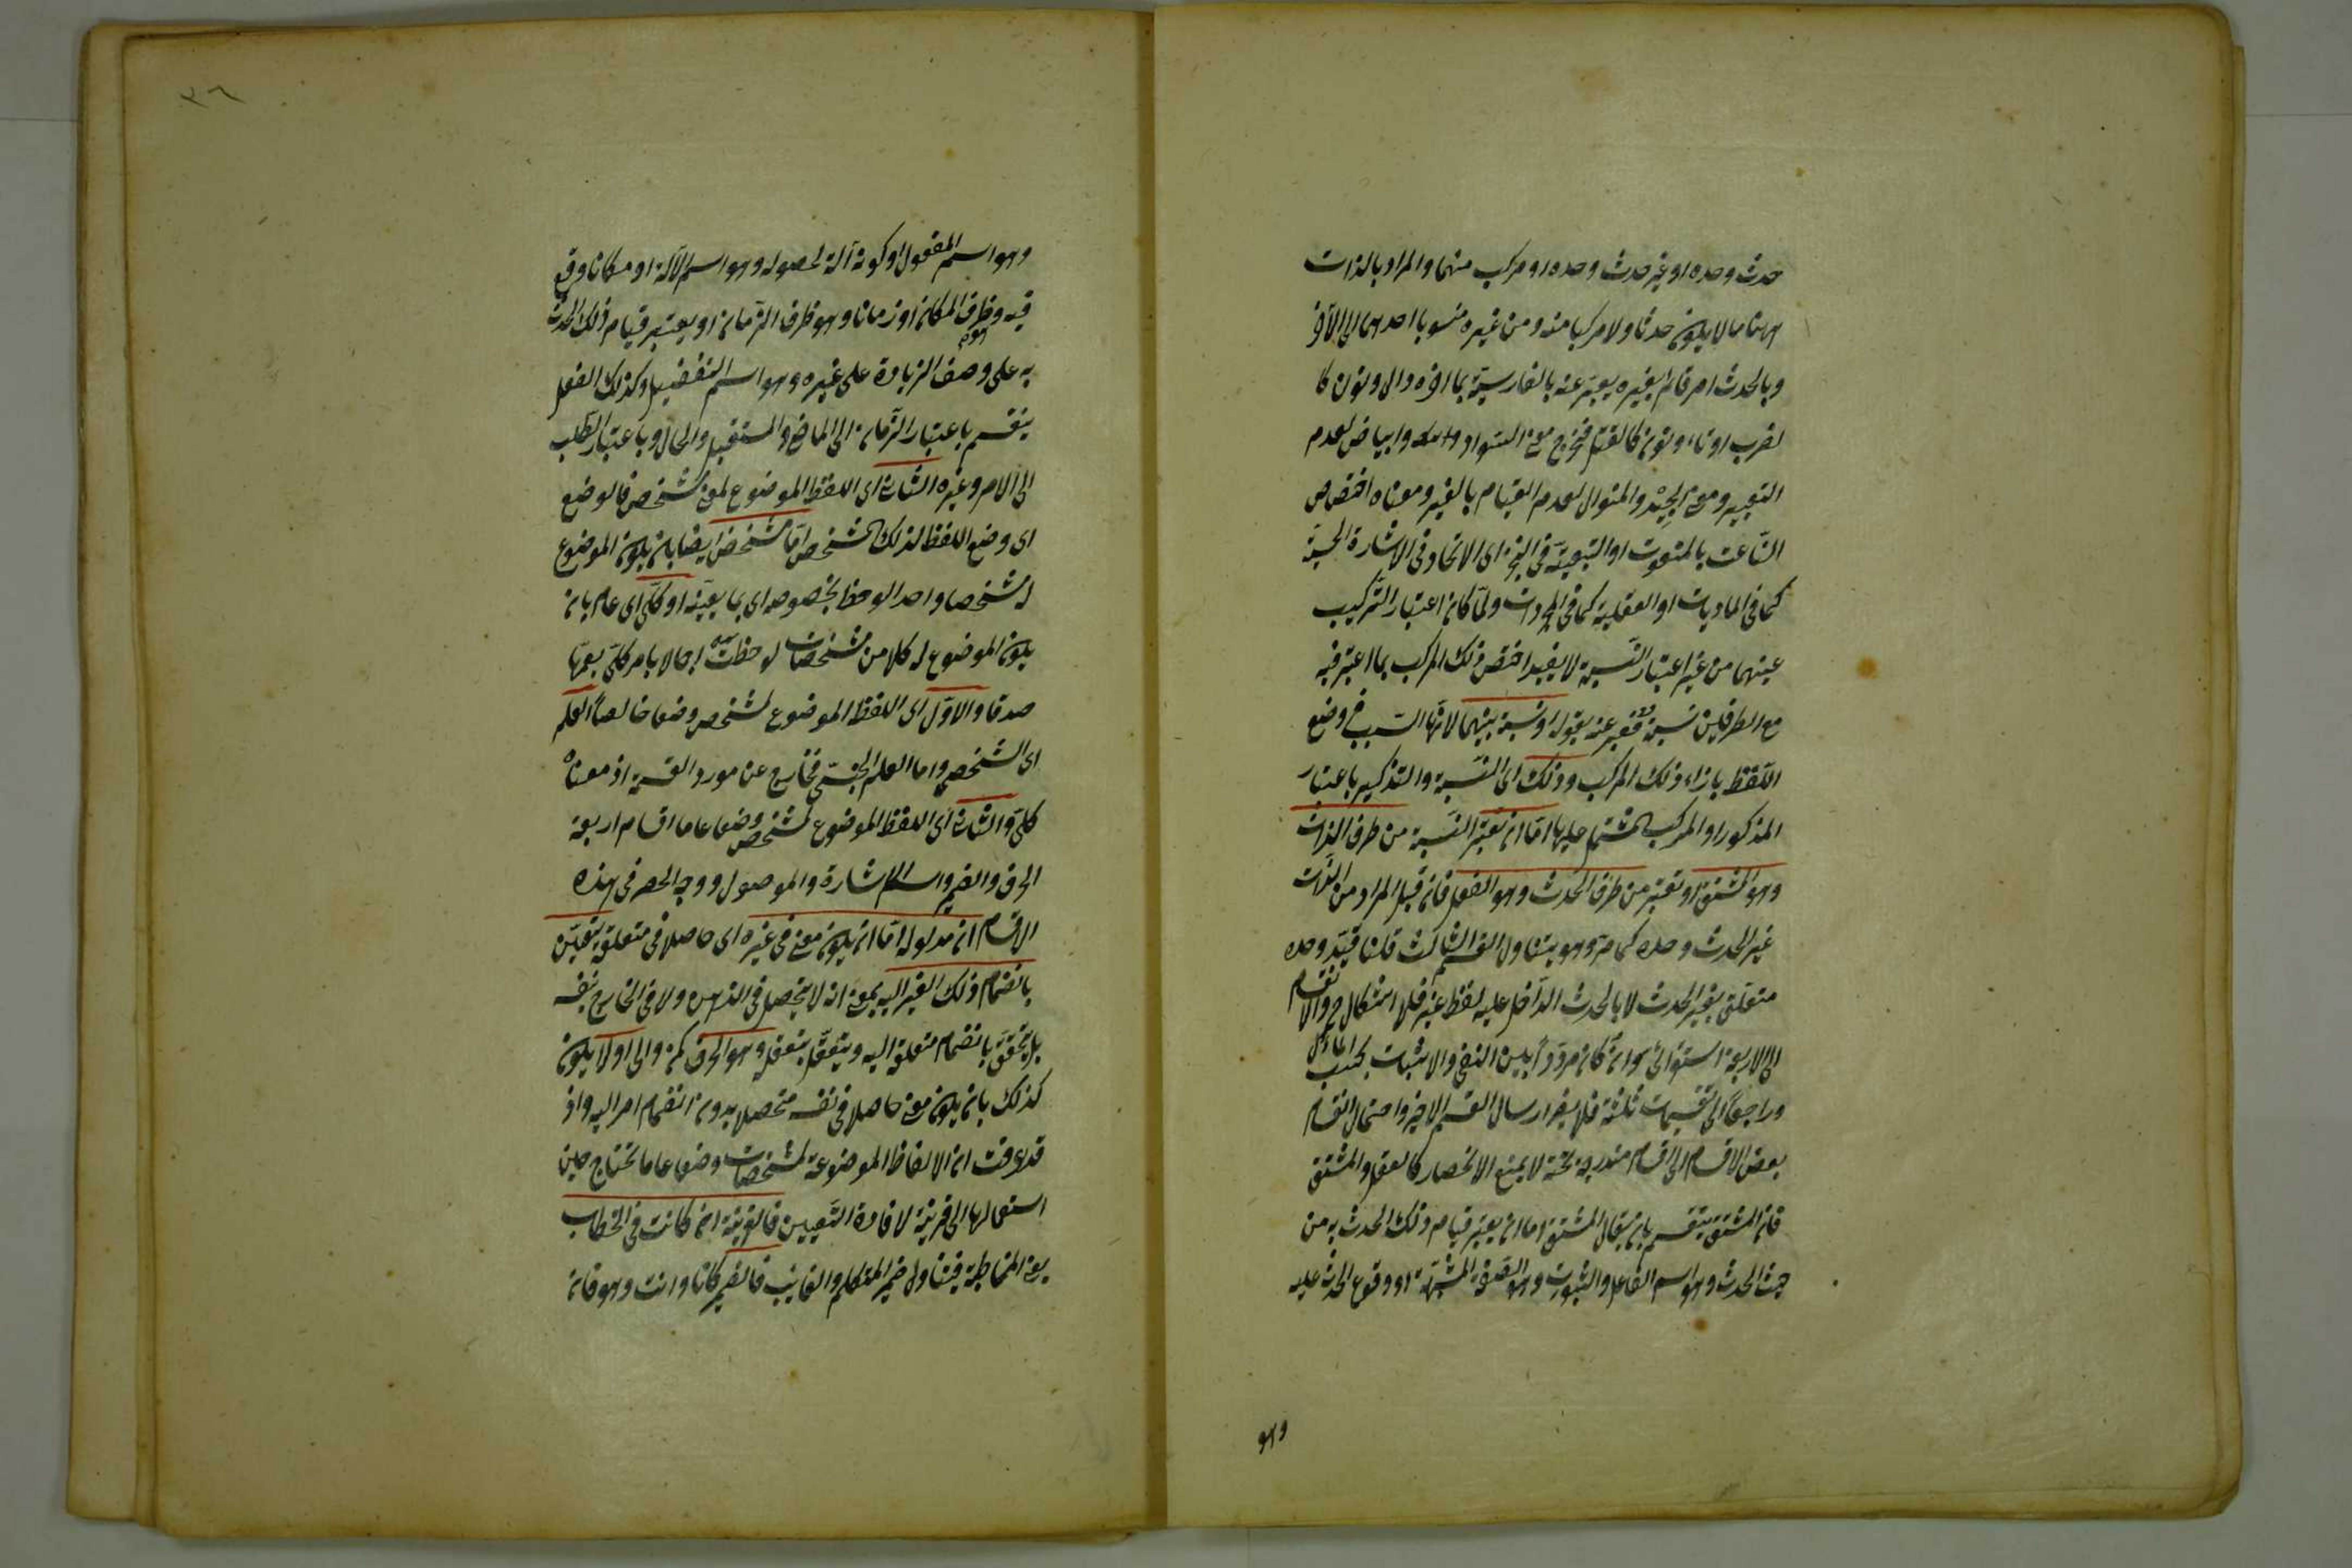 حدث وحده او غير حدث وحده او مركب منهما والمراد بالذات
ههنا ما لا يكون حدثا ولا مركبا منه ومن غيره منسوبا احدهما الى الآخر
وبالحدث امر قائم بغيره يعبر عنه بالفارسية بما آخره دال ونون كا
لضرب او تاء ونون كالقتل فخرج معنى السواد والبياض لعدم
التعبير ومعنى الجيد والمنوال لعدم القيام بالغير ومعناه اختصاص
الناعت بالمنعوت او التبعية في التحيز اى الاتحاد في الاشارة الحسية
كما في الماديات او العقلية كما في المجردات ولما كان اعتبار التركيب
بينهما من غير اعتبار النسبة لا يفيد اختص ذلك المركب بما اعتبر فيه
مع الطرفين نسبة فعبر عنه بقوله او نسبة بينهما لانها السبب في وضع
اللفظ بازاء ذلك المركب وذلك اى النسبة والتذكير باعتبار
المذكور او المركب المشتمل عليها اما ان يعتبر النسبة من طرف الذات
وهو المشتق او تعتبر من طرف الحدث وهو الفعل فان قيل المراد من الذات
غير الحدث وحده كما مر وهو يتناول القسم الثالث قلنا قيد وحده
متعلق بغير الحدث لا بالحدث الداخل عليه لفظ غير فلا اشكال ح والانقسام
الى الاربعة استقرائى وان كان مرددا بين النفى والاثبات بحسب المآل
وراجعا الى تقسيمات ثلثة فلا يضر ارسال القسم الاخير واحتمال انقسام
بعض الاقسام الى اقسام مندرجة تحته لا يمنع الانحصار كالفعل والمشتق
فان المشتق ينقسم بان يقال المشتق اما ان يعتبر قيام ذلك الحدث به من
حيث الحدث وهو اسم الفاعل والثبوت وهو الصفة المشبهة او وقوع الحدث عليه
وهو
٣٦
وهو اسم المفعول او كونه آلة لحصوله وهو اسم الآلة او مكانا وقع
فيه وهو ظرف المكان او زمانا وهو ظرف الزمان او يعتبر قيام ذلك الحدث
به على وصف الزيادة على غيره وهو اسم التفضيل وكذلك الفعل
ينقسم باعتبار الزمان الى الماضى والمستقبل والحال وباعتبار الطلب
الى الامر وغيره الثانى اى اللفظ الموضوع لمعنى مشخص فالوضع
اى وضع اللفظ لذلك المشخص اما مشخص ايضا بان يكون الموضوع
له مشخصا واحدا لوحظ بخصوصه اى بما يعينه او كلى اى عام بان
يكون الموضوع له كلا من مشخصات لوحظت اجمالا بامر كلى يعمها
صدقا والاول اى اللفظ الموضوع لمشخص وضعا خاصا العلم
اى الشخصى واما العلم الجنسى فخارج عن مورد القسمة اذ معناه
كلى والثانى اى اللفظ الموضوع لمشخص وضعا عاما اقسام اربعة
الحرف والضمير واسم الاشارة والموصول ووجه الحصر في هذه
الاقسام ان مدلوله اما ان يكون معنى في غيره اى حاصلا في متعلقه يتعين
بانضمام ذلك الغير اليه بمعنى انه لا يتحصل في الذهن ولا في الخارج بنفسه
بل يتحقق بانضمام متعلقه اليه ويتعقل بتعقله وهو الحرف كمن والى او لا يكون
كذلك بان يكون معنى حاصلا في نفسه متحصلا بدون انضمام امر اليه واذ
قد عرفت ان الالفاظ الموضوعة لمشخصات وضعا عاما تحتاج حين
استعمالها الى قرينة لافادة التعيين فالقرينة ان كانت في الخطاب
يعنى المخاطبة فيتناول ضمير المتكلم والغايب فالضمير كانا وانت وهو فان